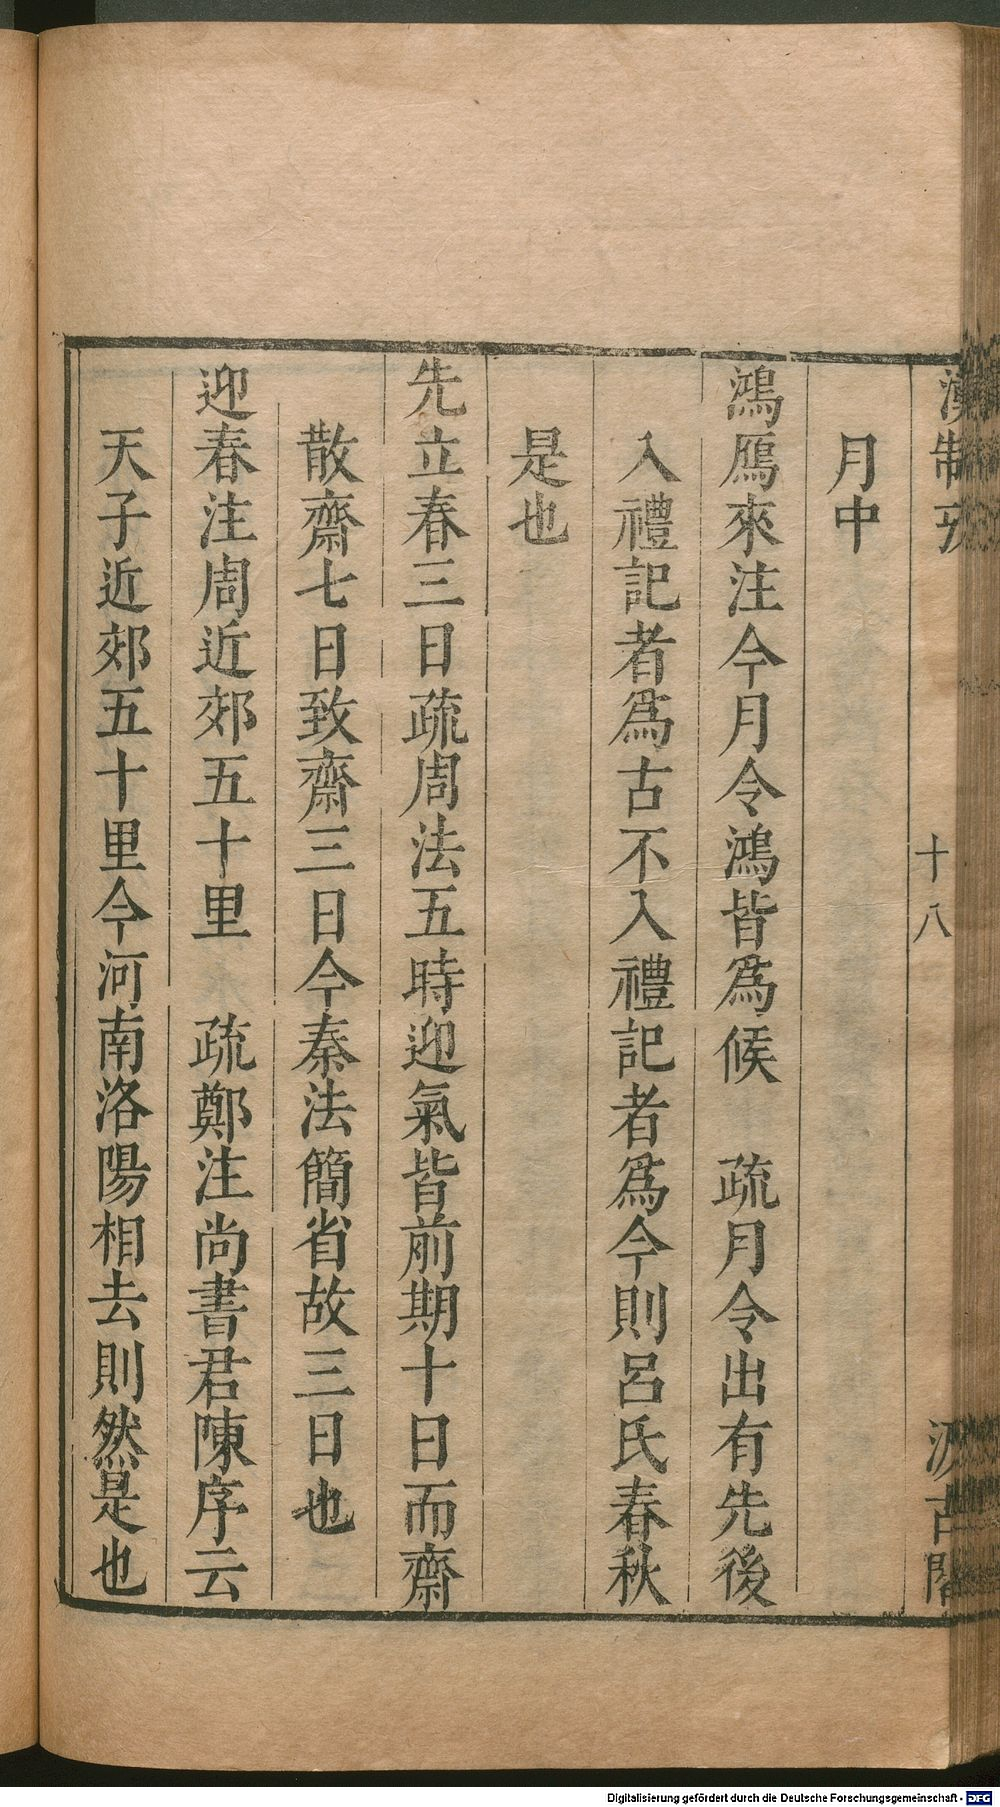 漢制攷
十八
汲古閣
月中
鴻鴈來注今月令鴻皆爲候　疏月令出有先後
入禮記者爲古不入禮記者爲今則呂氏春秋
是也
先立春三日疏周法五時迎氣皆前期十日而齋
散齋七日致齋三日今秦法簡省故三日也
迎春注周近郊五十里　疏鄭注尚書君陳序云
天子近郊五十里今河南洛陽相去則然是也
Digitalisierung gefördert durch die Deutsche Forschungsgemeinschaft - DFG